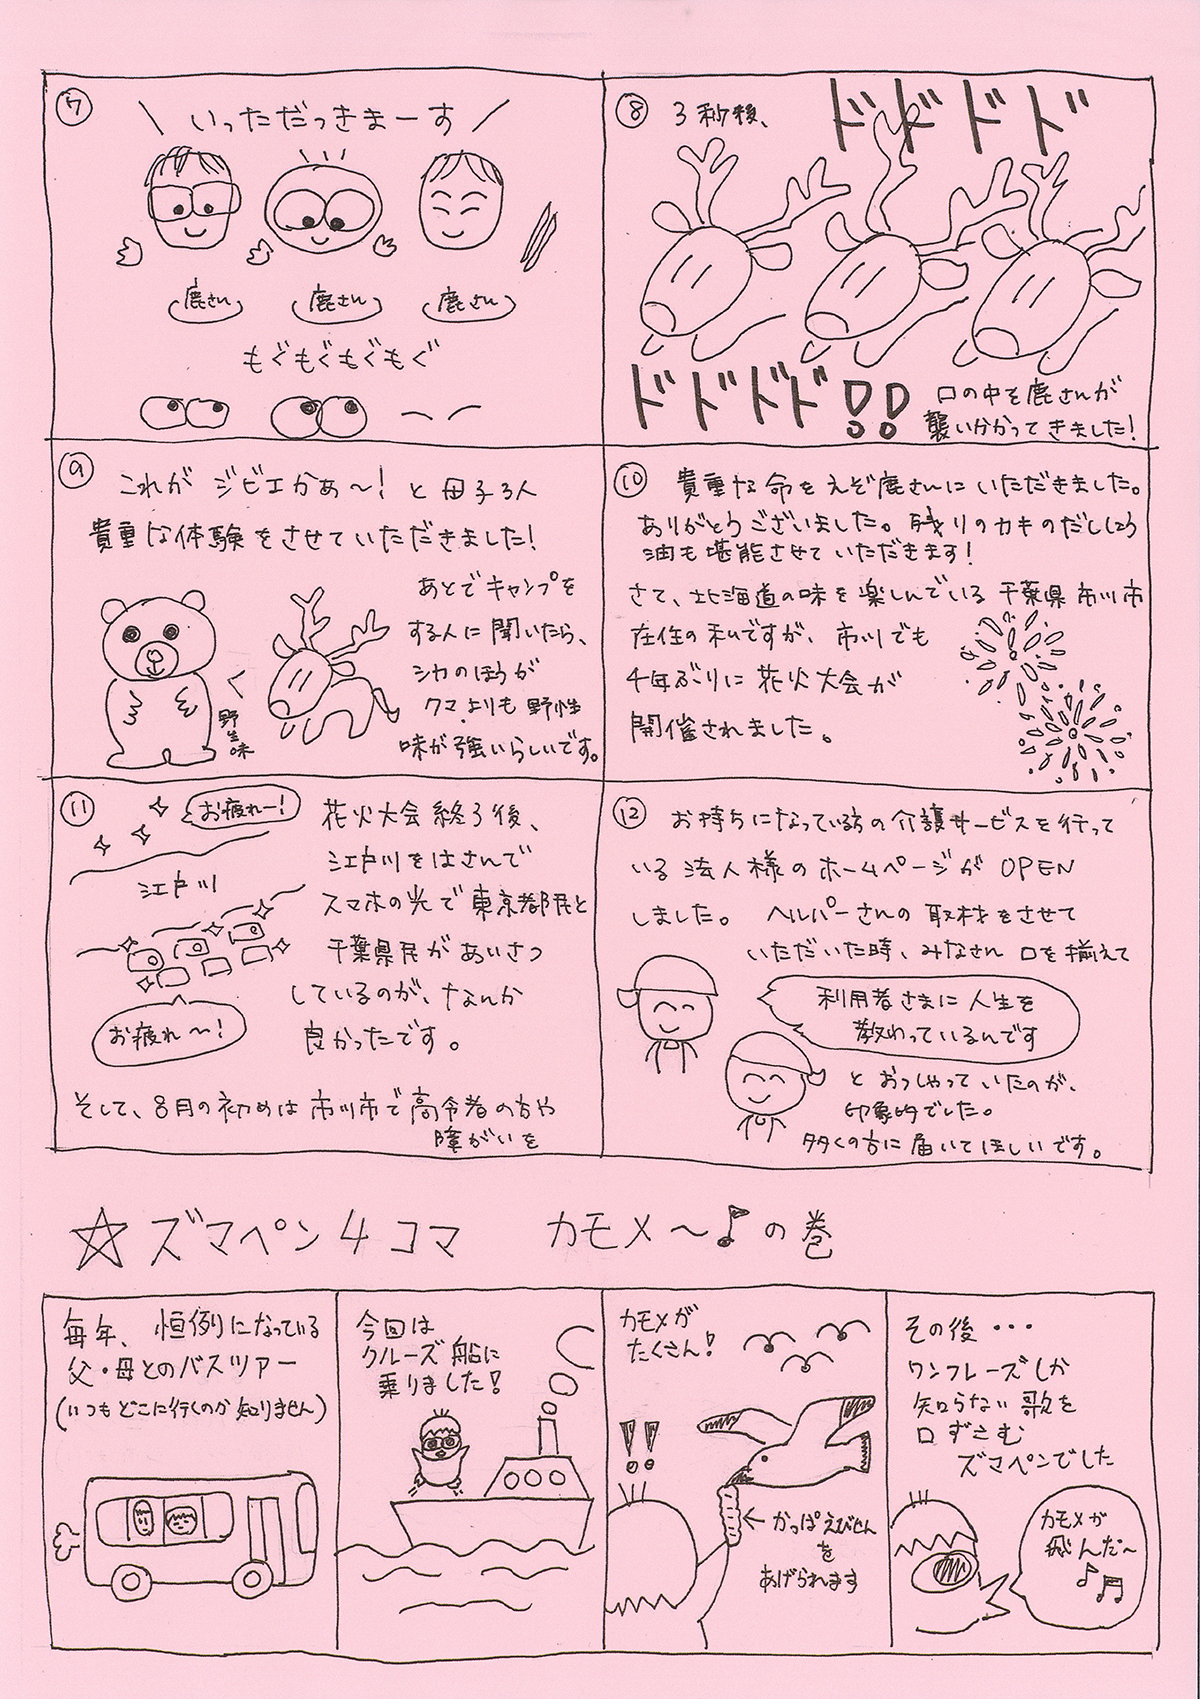 ⑦
いっただっきまーす
鹿さん
鹿さん
鹿さん
もぐもぐもぐもぐ
⑧ 3秒後、
ドドドド
ドドドド!!
口の中を鹿さんが
襲い分かってきました!
⑨
これがジビエかぁ〜!と母子3人
貴重な体験をさせていただきました!
あとでキャンプを
する人に聞いたら、
シカのほうが
クマよりも野性
味が強いらしいです。
く
野生味
⑩ 貴重な命をえぞ鹿さんにいただきました。
ありがとうございました。残りのカキのだししょう
油も堪能させていただきます!
さて、北海道の味を楽しんでいる千葉県市川市
在住の私ですが、市川でも
4年ぶりに花火大会が
開催されました。
⑪
お疲れー!
江戸川
お疲れ〜!
花火大会終了後、
江戸川をはさんで
スマホの光で東京都民と
千葉県民があいさつ
しているのが、なんか
良かったです。
そして、8月の初めは市川市で高令者の方や
障がいを
⑫ お持ちになっている方の介護サービスを行って
いる法人様のホームページがOPEN
しました。ヘルパーさんの取材をさせて
いただいた時、みなさん口を揃えて
利用者さまに人生を
教わっているんです
とおっしゃっていたのが、
印象的でした。
多くの方に届いてほしいです。
☆ズマペン4コマ カモメ〜♪の巻
毎年、恒例になっている
父・母とのバスツアー
(いつもどこに行くのか知りません)
今回は
クルーズ船に
乗りました!
カモメが
たくさん!
!!
←かっぱえびせん
を
あげられます
その後・・・
ワンフレーズしか
知らない歌を
口ずさむ
ズマペンでした
カモメが
飛んだ〜
♪♫